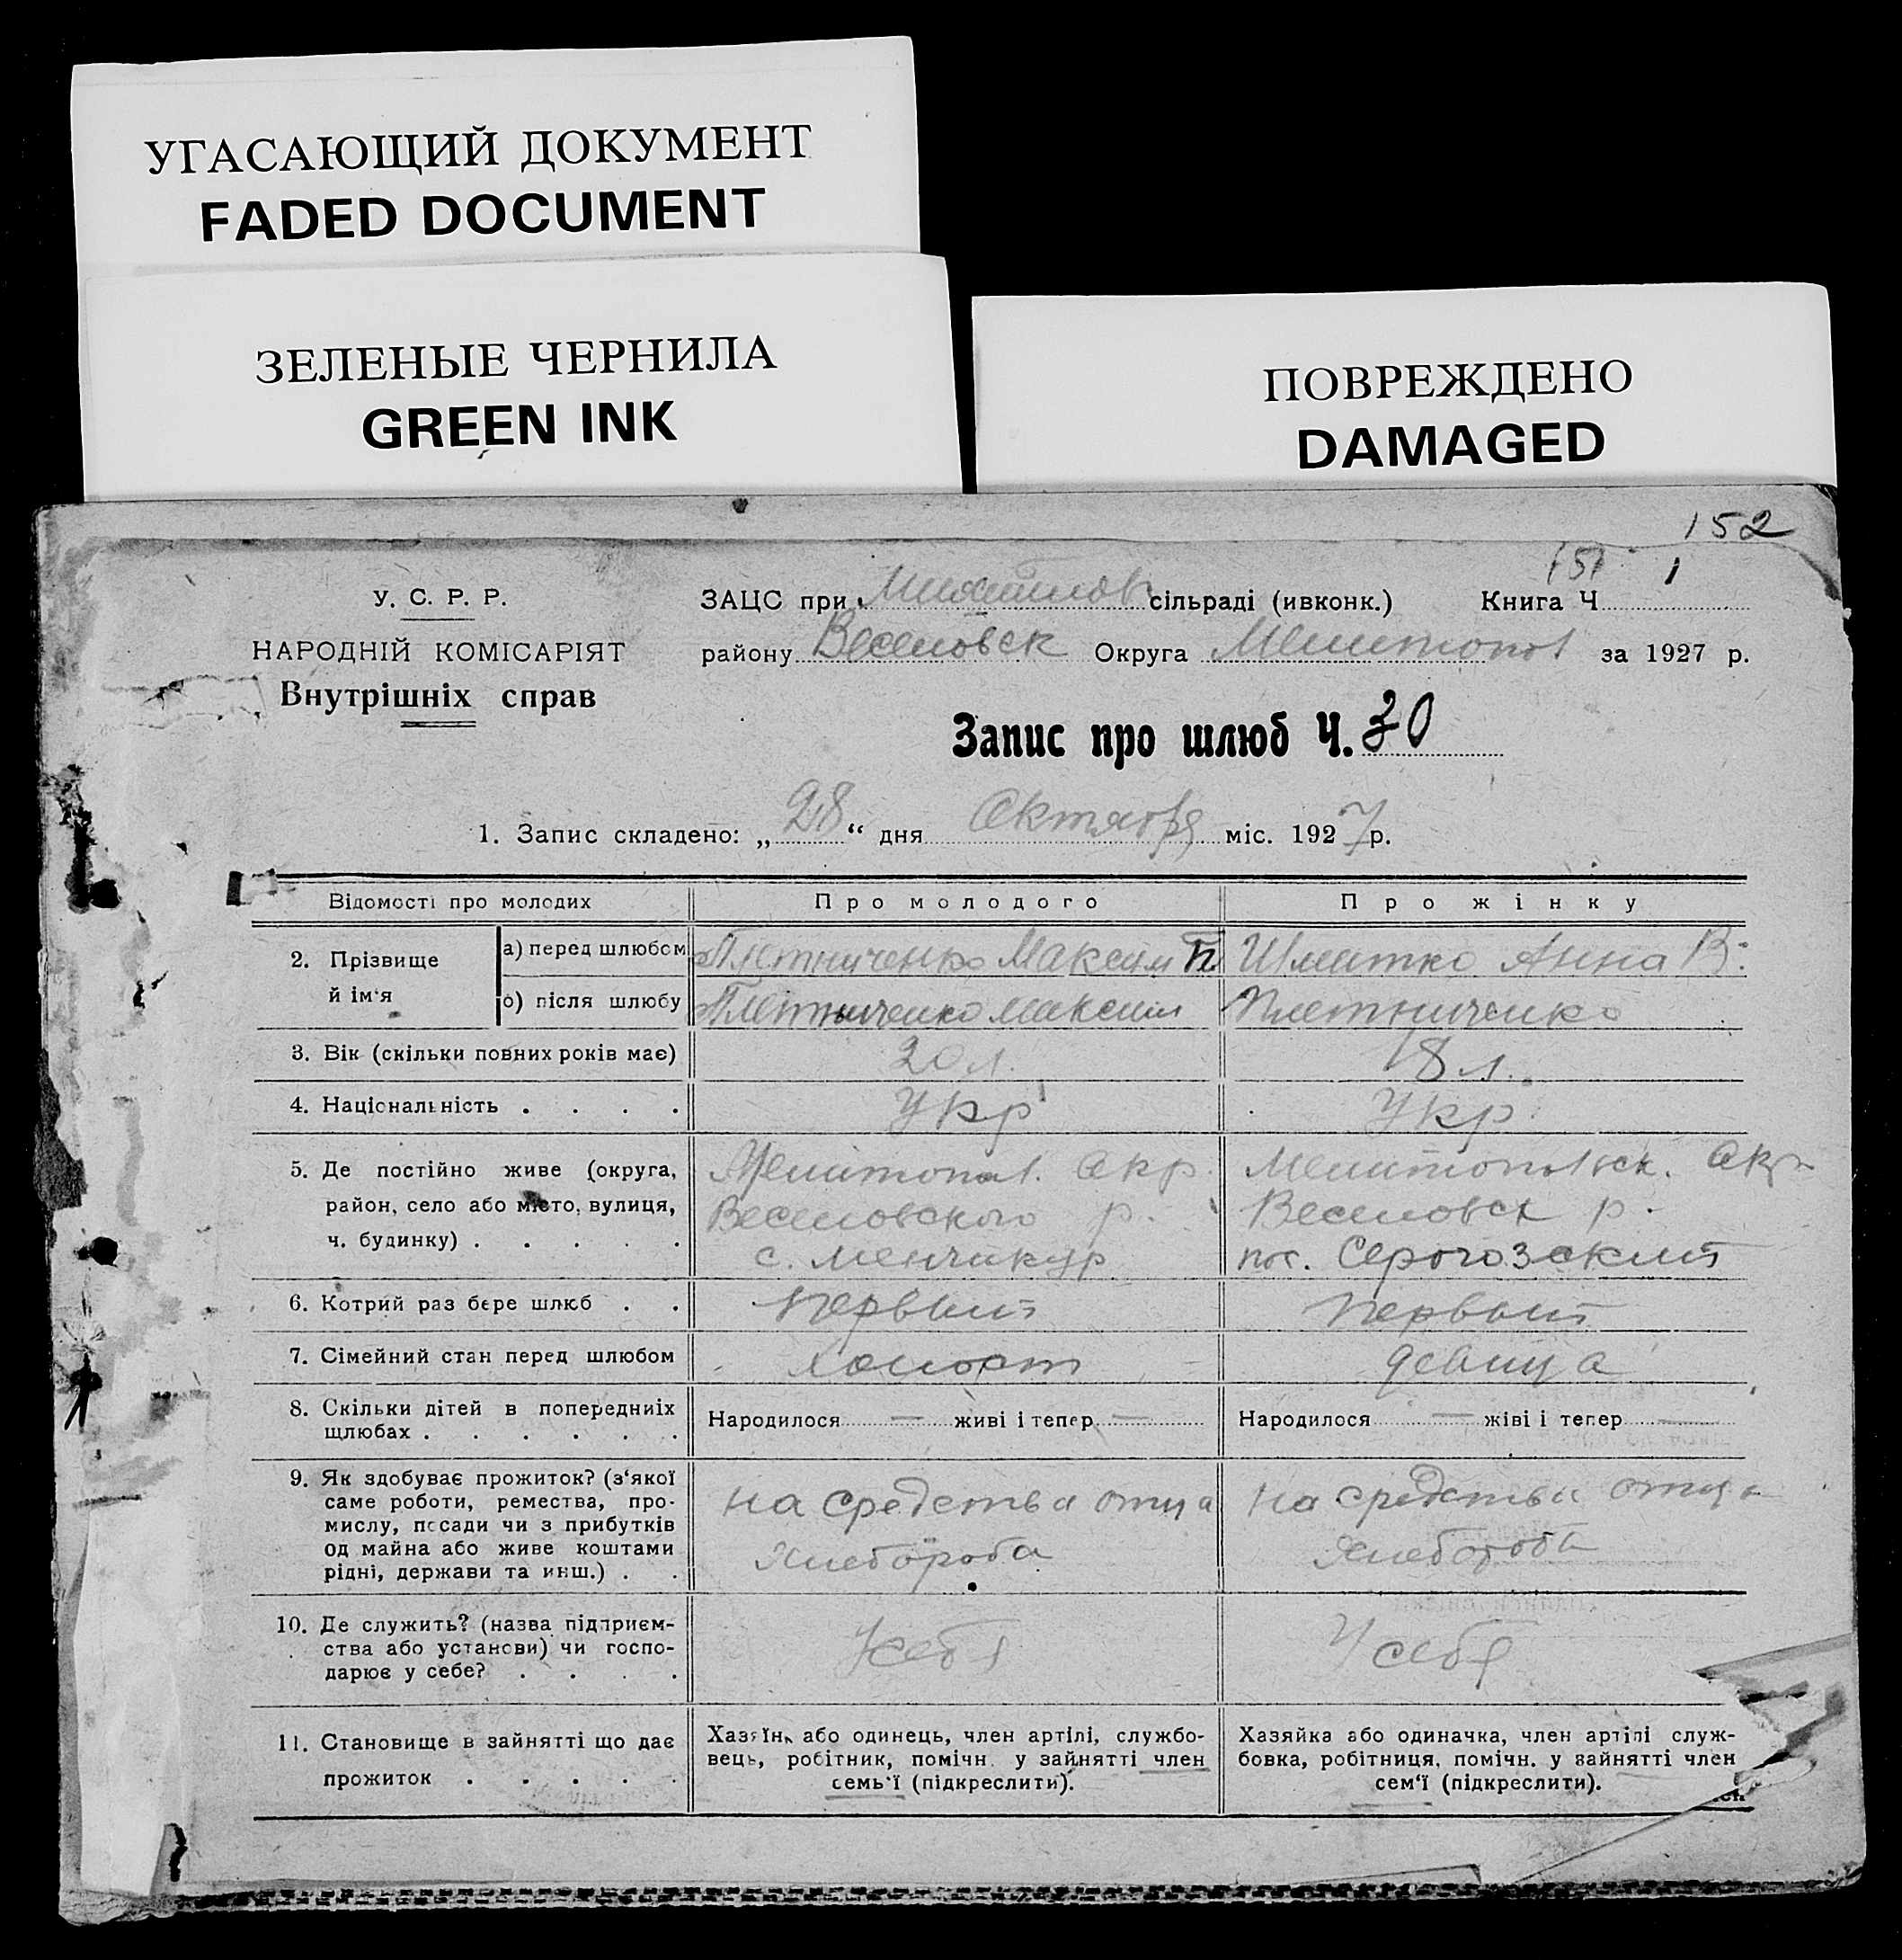 УГАСАЮЩИЙ ДОКУМЕНТ
FADED DOCUMENT
ЗЕЛЕНЫЕ ЧЕРНИЛА
GREEN INK
ПОВРЕЖДЕНО
DAMAGED
152
151 1
У. С. Р. Р.
НАРОДНІЙ КОМІСАРІЯТ
Внутрішніх справ
ЗАЦС при сільраді (ивконк.) Книга Ч
району Веселовск Округа Мелитопол за 1927 р.
Запис про шлюб Ч. 30
1. Запис складено: „28“ дня Октября міс. 1927 р.
Відомості про молодих Про молодого Про жінку
2. Прізвище й ім'я
а) перед шлюбом Плетниченко Максим П. Шметко Анна В.
б) після шлюбу Плетниченко Максим Плетниченко
3. Вік (скільки повних років має) 20 л. 18 л.
4. Національність . . . . Укр Укр.
5. Де постійно живе (округа, Мелитопол. Окр. Мелитопольск. Окр
район, село або місто, вулиця, Веселовского р. Веселовск р.
ч. будинку) . . . . . с. Менчикур пос. Серогозский
6. Котрий раз бере шлюб . . Первый Первый
7. Сімейний стан перед шлюбом холост девица
8. Скільки дітей в попередниіх Народилося — живі і тепер — Народилося — жіві і тепер —
щлюбах . . . . . .
9. Як здобуває прожиток? (з'якої
саме роботи, ремества, про-
мислу, посади чи з прибутків
од майна або живе коштами
рідні, держави та инш.) . .
на средства отца
хлебороба
на средства отца
хлебороба
10. Де служить? (назва підприєм-
ства або установи) чи госпо-
дарює у себе? . . . .
У себя У себя
11. Становище в зайнятті що дає
прожиток . . . . .
Хазяїн, або одинець, член артілі, службо-
вець, робітник, помічн. у зайнятті член
семь'ї (підкреслити).
Хазяйка або одиначка, член артілі служ-
бовка, робітниця, помічн. у зайнятті член
сем'ї (підкреслити).